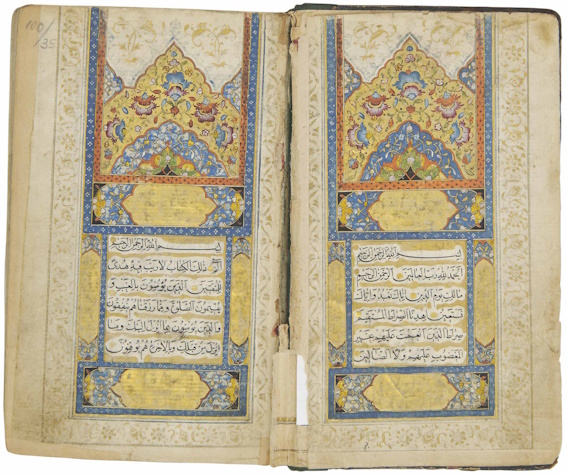 بسم الله الرحمن الرحيم
الحمد لله رب العالمين الرحمن الرحيم
مالك يوم الدين اياك نعبد واياك
نستعين اهدنا الصراط المستقيم
صراط الذين انعمت عليهم غير
المغضوب عليهم ولا الضالين
100
/35
بسم الله الرحمن الرحيم
الم ذلك الكتاب لا ريب فيه هدى
للمتقين الذين يؤمنون بالغيب و
يقيمون الصلوة ومما رزقناهم ينفقون
والذين يؤمنون بما انزل اليك وما
انزل من قبلك وبالاخرة هم يوقنون